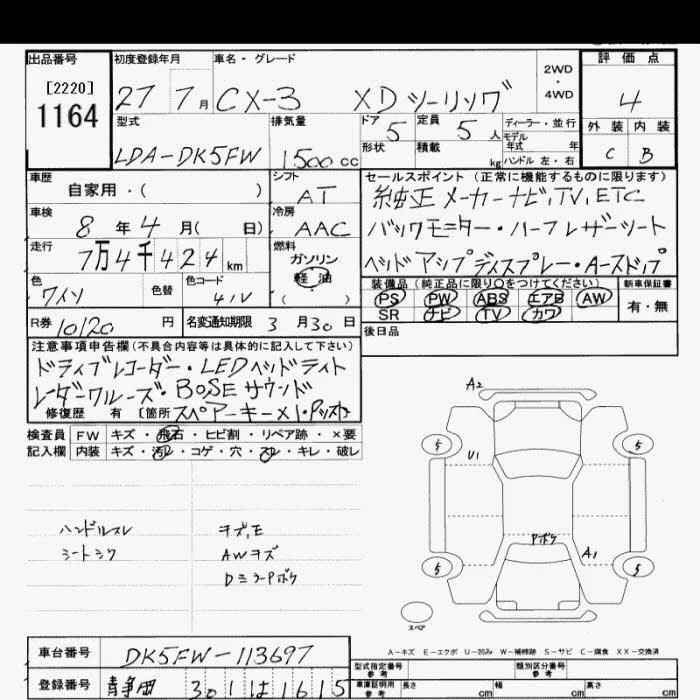 出品番号
[2220]
1164
初度登録年月
27 7月
車名・グレード
CX-3 XDツーリング
2WD
・
4WD
評価点
4
外装 内装
C B
型式
LDA-DK5FW
排気量
1500cc
ドア 5
定員 5人
形状
積載 kg
ディーラー・並行
モデル
年式 年
ハンドル 左・右
車歴
自家用・( )
シフト
AT
車検
8年4月( 日)
冷房
AAC
走行
7万4千424km
燃料
ガソリン
軽油
( )
色
ワイン
色替
色コード
41V
R券 10120円
名変通知期限 3月30日
セールスポイント(正常に機能するものに限ります)
純正メーカーナビ,TV,ETC
バックモニター・ハーフレザーシート
ヘッドアップディスプレー・Aーストップ
装備品(純正品に限り○をつけてください)
PS PW ABS エアB AW
SR ナビ TV カワ
新車保証書
有・無
後日品
注意事項申告欄(不具合内容等は具体的に記入して下さい)
ドライブレコーダー・LEDヘッドライト
レーダークルーズ・BOSEサウンド
修復歴 有 〔箇所 スペアーキー×1・
検査員 FW キズ・飛石・ヒビ割・リペア跡・×要
記入欄 内装 キズ・汚レ・コゲ・穴・スレ・キレ・破レ
ハンドルスレ
シートシワ
キズ,E
AWキズ
DミラーPボケ
A2
5 5
U1
Pボケ
A1
5 5
スペア
A-キズ E-エクボ U-凹み W-補修跡 S-サビ C-腐食 XX-交換済
車台番号
DK5FW-113697
登録番号
静岡 301 は 1615
型式指定番号
参考
類別区分番号
参考
車庫証明用
参考
長さ cm
幅 cm
高さ cm